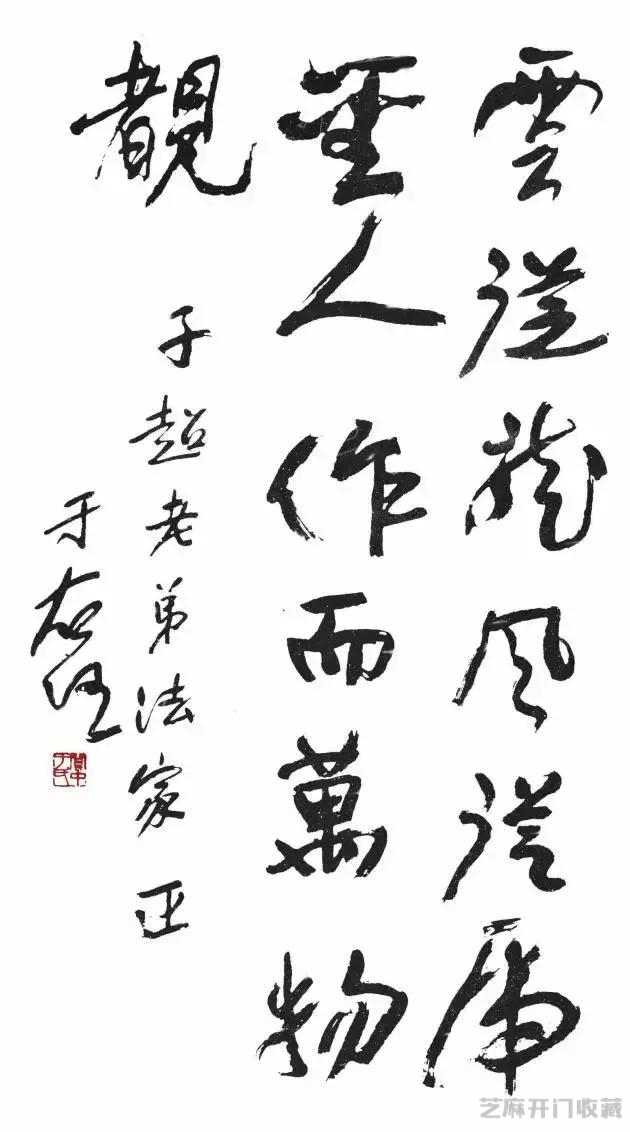 雲從龍風從虎
聖人作而萬物
覩
子超老弟法家正
于右任
關中于氏
芝麻开门收藏